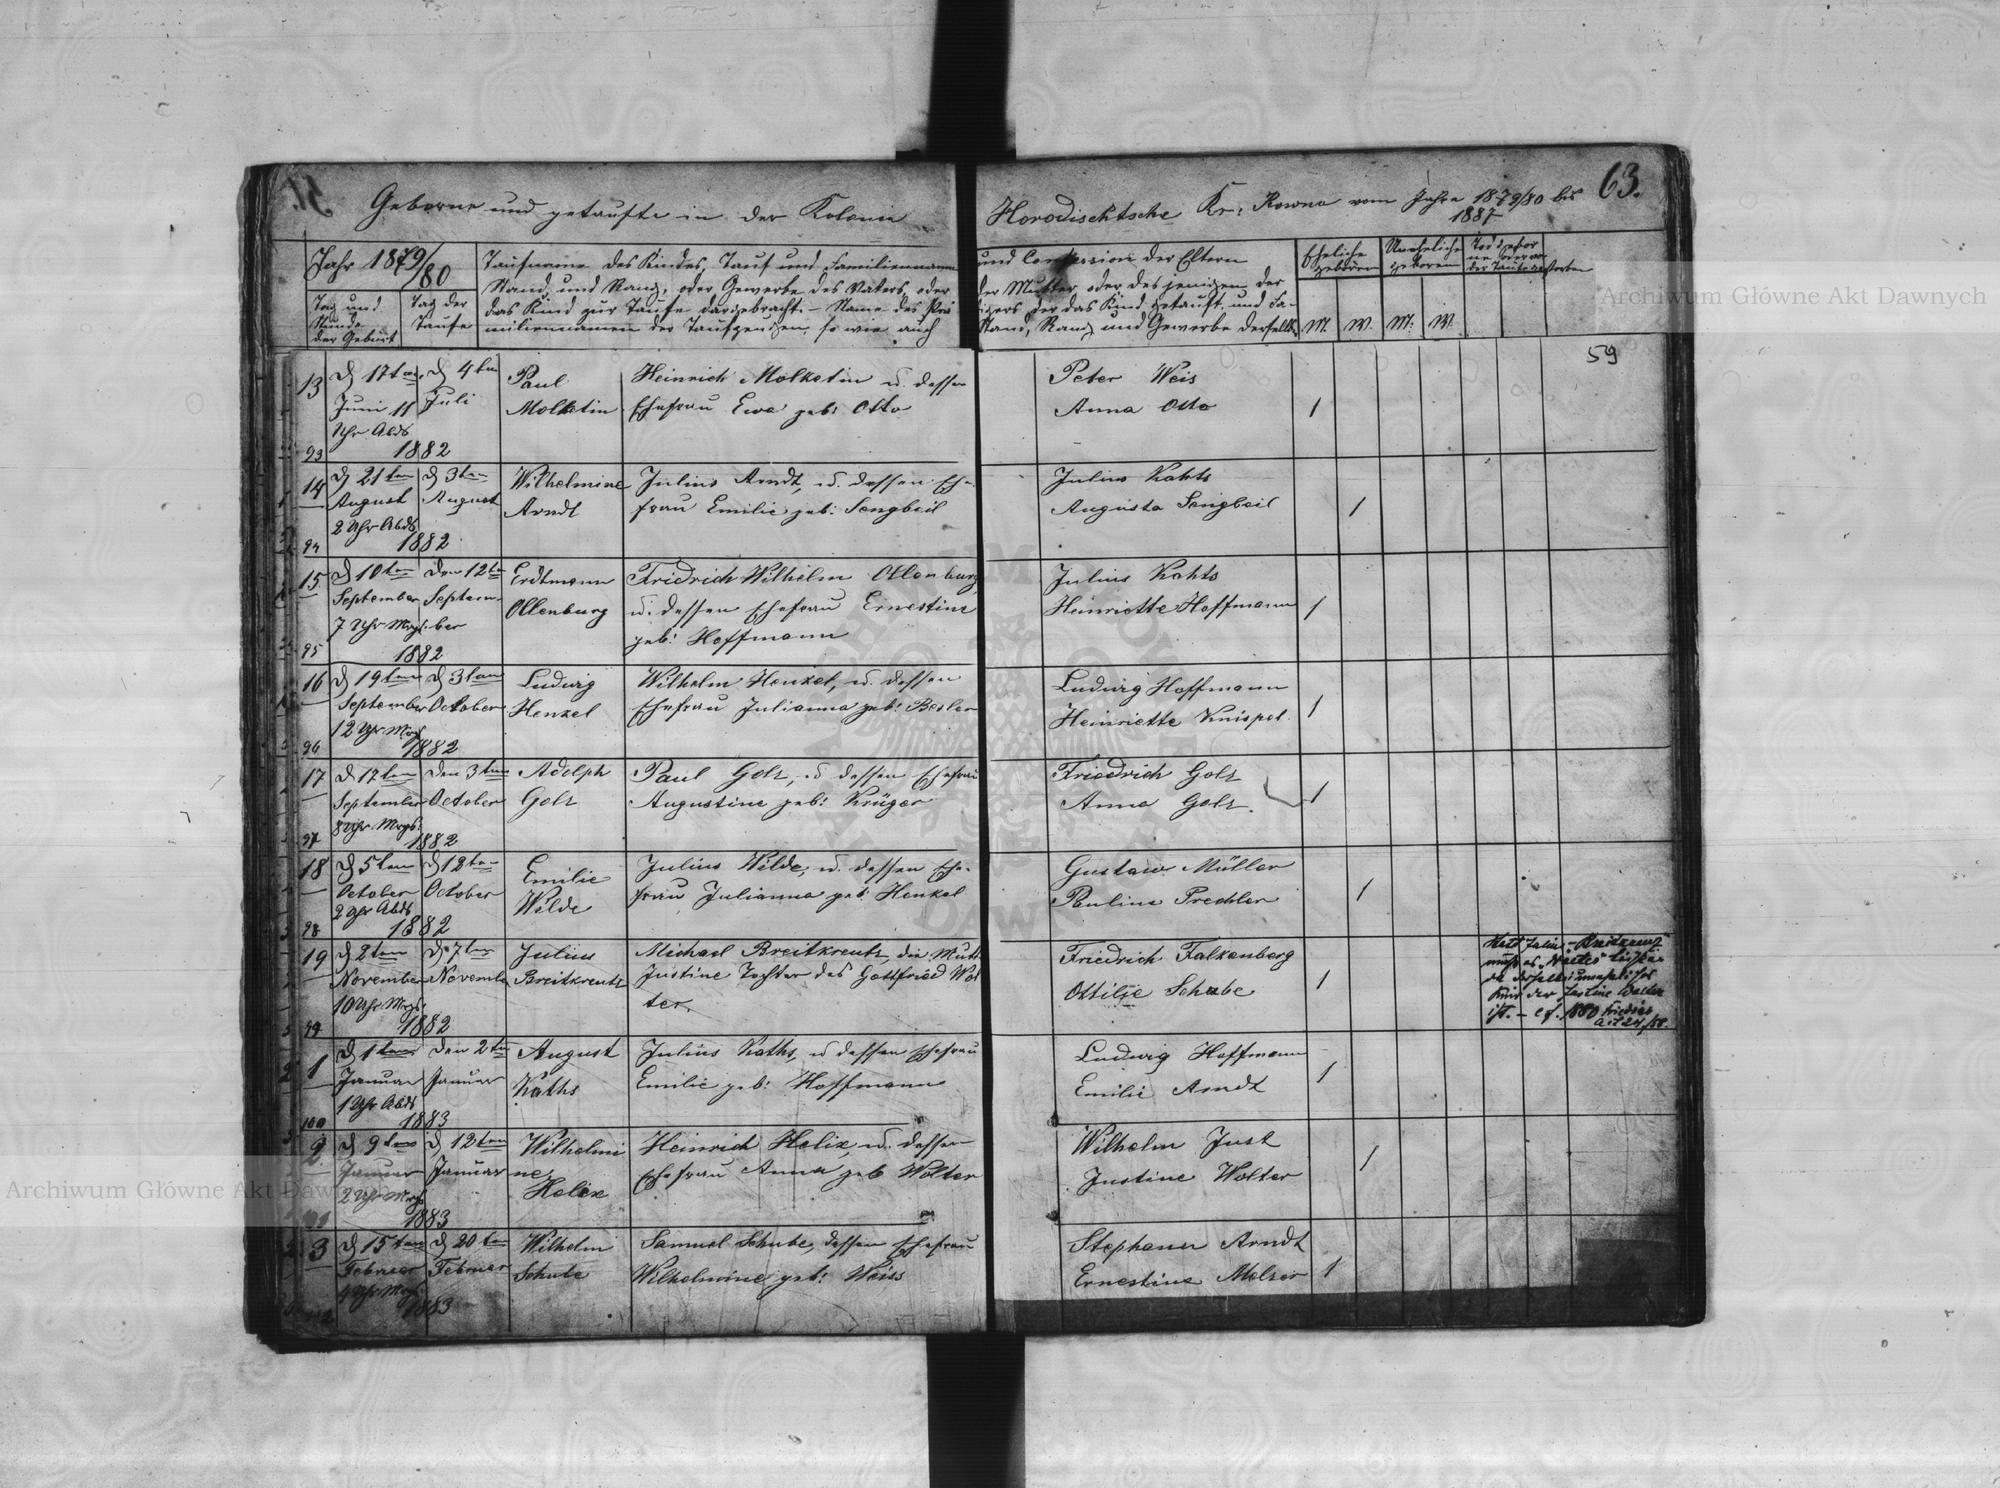 63.
Geborne und getaufte in der Kolonie Horodischtsche Kr: Rowno vom Jahre 1879/80 bis
1887
Jahr 1879/80
Tag und
Stunde
der Geburt
Tag der
Taufe
Taufname des Kindes, Tauf und Familienname und Confession der Eltern
Stand und Rang, oder Gewerbe des Vaters, oder der Mutter oder desjenigen der
das Kind zur Taufe dargebracht. – Name des Predigers der das Kind getauft und Fa-
miliennamen der Taufzeugen, so wie auch Stand, Rang und Gewerbe derselben
Eheliche
geboren
Uneheliche
geboren
M. W. M: W.
59
13 d 17ten d 4ten Paul Heinrich Molketin u. dessen Peter Weis
Juni 11 Juli Molketin Ehefrau Ewa geb: Otto Anna Otto 1
Uhr Abds
93 1882
14 d 21ten d 3ten Wilhelmine Julius Arndt, u. dessen Ehe- Julius Kahts
August August Arndt frau Emilie geb: Sengbeil Augusta Sengbeil 1
2 Uhr Abds
94 1882
15 d 10ten den 12ten Erdtmann Fridrich Wilhelm Ollenburg Julius Kahts
September Septem- Ollenburg u. dessen Ehefrau Ernestine Heinriette Hoffmann 1
7 Uhr Mrgs: ber geb: Hoffmann
95 1882
16 d 19ten d 3ten Ludwig Wilhelm Henkel, u. dessen Ludwig Hoffmann
September October Henzel Ehefrau Julianna geb: Besler Heinriette Knispel 1
12 Uhr Mrgs
96 1882
17 d 17ten den 3ten Adolph Paul Golz, u dessen Ehefrau Friedrich Golz
September October Golz Augustine geb: Krüger Anna Golz 1
8 Uhr Mrgs:
97 1882
18 d 5ten d 12ten Emilie Julius Wilde, u. dessen Ehe- Gustaw Müller
October October Wilde frau Julianna geb: Henkel Pauline Prechler 1
2 Uhr Abds
98 1882
19 d 2ten d 7ten Julius Michael Breitkreutz, die Mutt: Friedrich Falkenberg
November Novemb Breitkreutz Justine Tochter des Gottfried Wol Ottilie Schube 1
10 Uhr Mrgs: ter.
99 1882
1 d 1ten den 2ten August Julius Kaths, u dessen Ehefrau Ludwig Hoffmann
Januar Januar Kaths Emilie geb: Hoffmann Emilie Arndt 1
1 Uhr Abds
100 1883
2 d 9ten d 12ten Wilhelmi Heinrich Helix, u. dessen Wilhelm Just
Januar Januar ne, Ehefrau Anna geb Wolter Justine Wolter 1
2 Uhr Mrgs Helix
1883
3 d 15ten d 20ten Wilhelm Samuel Schube, dessen Ehefrau Stephann Arndt
Februar Februar Schube Wilhelmine geb: Weiss Ernestine Melzer 1
4 Uhr Mrgs:
1883
Archiwum Główne Akt Dawnych
Archiwum Główne Akt Dawnych